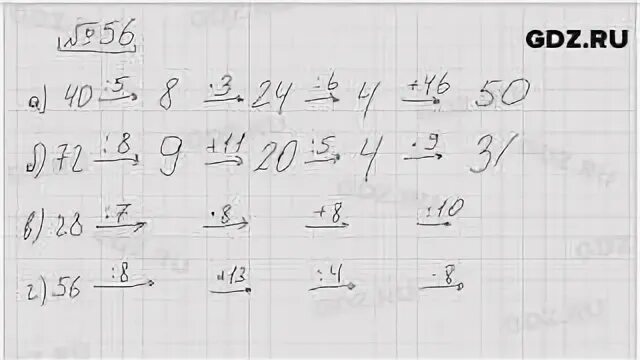 №56
GDZ.RU
а) 40 :5→ 8 ·3→ 24 :6→ 4 +46→ 50
б) 72 :8→ 9 +11→ 20 :5→ 4 ·9→ 3
в) 28 :7→ ·8→ +8→ :10→
г) 56 :8→ +13→ :4→ ·8→